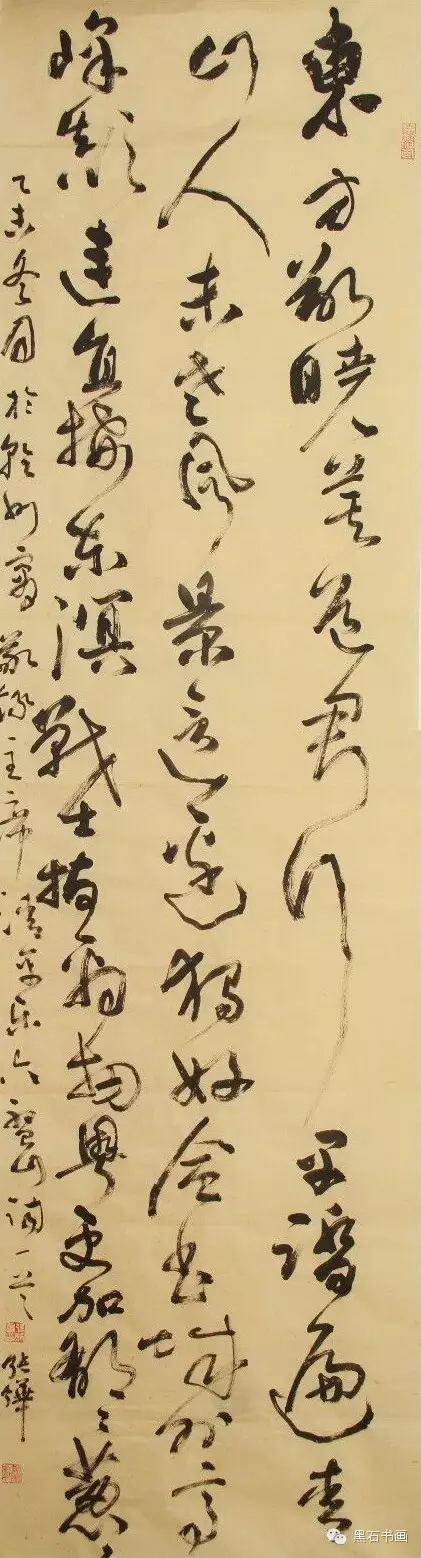 東方欲曉莫道君行早踏遍青
山人未老風景這邊獨好會昌城外高
峰顛連直接東溟戰士指看南粵更加郁〻蔥〻
乙未冬月於州敬錄主席清平樂六盤山詞一首
黑石书画